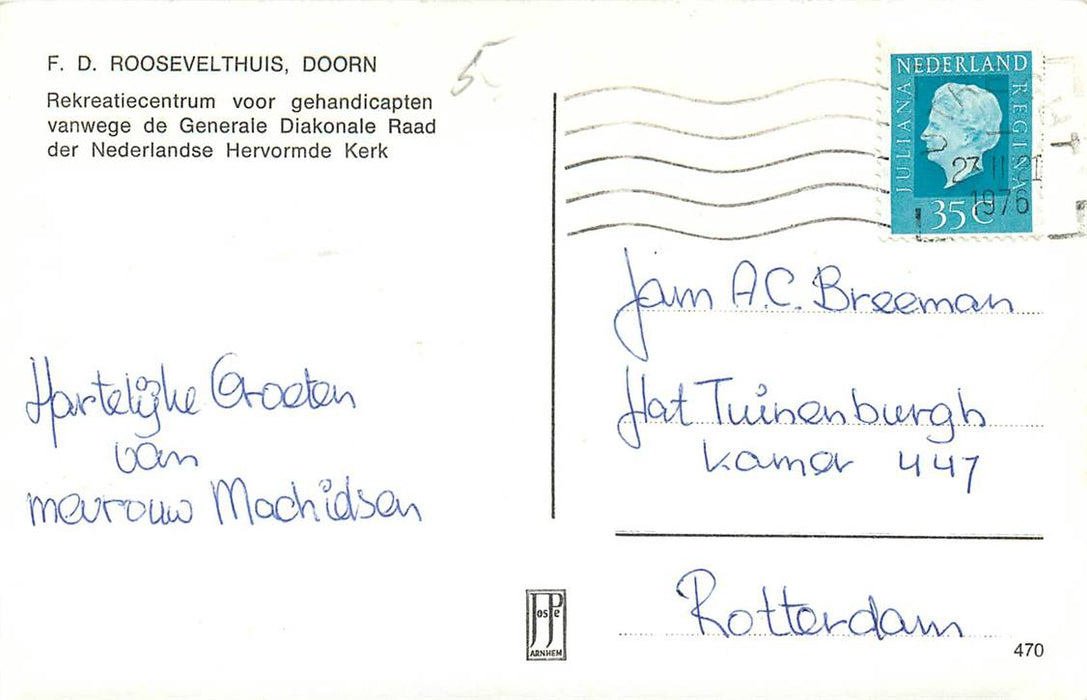 F. D. ROOSEVELTHUIS, DOORN
Rekreatiecentrum voor gehandicapten
vanwege de Generale Diakonale Raad
der Nederlandse Hervormde Kerk
5-
NEDERLAND
JULIANA
REGINA
35 C
23 II 21
1976
Hartelijke Groeten
van
mevrouw Machidsen
Jam A.C. Breeman
flat Tuinenburgh
kamer 447
Rotterdam
JosPe
ARNHEM
470